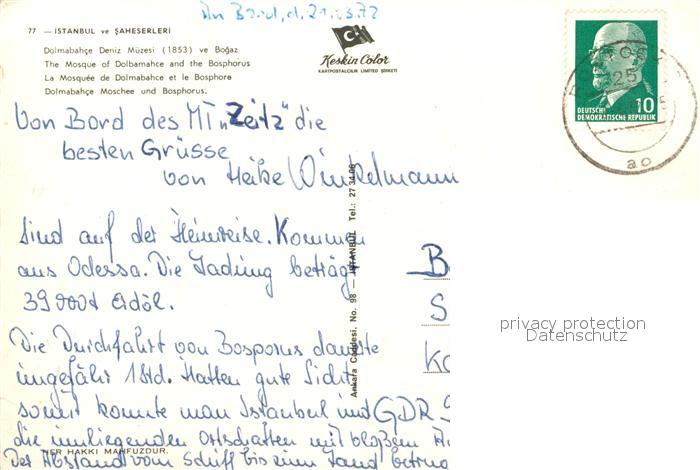 An Bord, d. 21.03.72
77 — ISTANBUL ve ŞAHESERLERİ
Dolmabahçe Deniz Müzesi (1853) ve Boğaz
The Mosque of Dolbamahce and the Bosphorus
La Mosquée de Dolmabahce et le Bosphore
Dolmabahçe Moschee und Bosphorus.
Keskin Color
KARTPOSTALCILIK LIMITED ŞİRKETİ
10
DEUTSCHE
DEMOKRATISCHE REPUBLIK
Von Bord des MT „Zeitz" die
besten Grüsse
von Heike Winkelmann
Sind auf der Heimreise. Kommen
aus Odessa. Die Ladung beträgt
39000t Erdöl.
Die Durchfahrt von Bosporus dauerte
ungefähr 1 Std. Hatten gute Sicht,
somit konnte man Istanbul und
die umliegenden Ortschaften mit bloßem
Der Abstand vom Schiff bis zum Land betrug
HER HAKKI MAHFUZDUR.
Ankara Caddesi. No. 98 — İSTANBUL Tel.: 27 34 06
B
S
Ka
GDR
privacy protection
Datenschutz